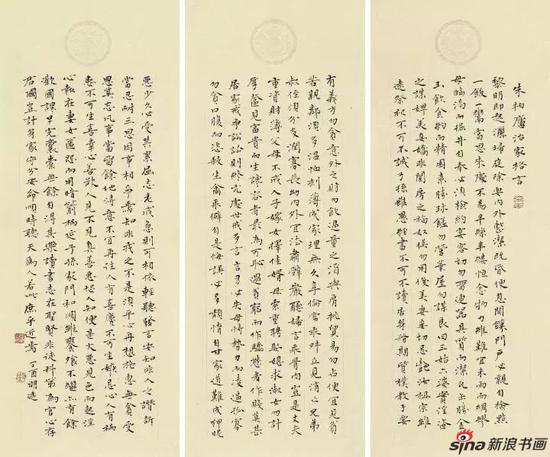 朱柏廬治家格言
黎明即起灑掃庭除要内外整潔既昏便息關鎖門户必親自檢點
一飯一粥當思来處不易半絲半縷恒念物力維艱宜未雨而綢繆
毋臨渴而掘井自奉必須儉約宴客切勿留連器具質而潔瓦缶勝金
玉飲食約而精園蔬勝珍饈勿營華屋勿謀良田三姑六婆實淫盗
之媒婢美妾嬌非閨房之福奴僕勿用俊美妻妾切忌艷妝祖宗雖
遠祭祀不可不誠子孫雖愚經書不可不讀居身務期質樸教子要
有義方勿貪意外之財勿飲過量之酒與肩挑貿易勿占便宜見貧
苦親鄰須多温恤刻薄成家理無久享倫常乖舛立見消亡兄弟
叔侄須分多潤寡長幼内外宜法肅辭嚴聽婦言乖骨肉豈是丈夫
重資財薄父母不成人子嫁女擇佳婿毋索重聘娶媳求淑女勿計
厚奩見富貴而生諂容者最為可恥遇貧窮而作驕態者賤莫甚
居家戒争訟訟則終凶處世戒多言言多必失毋恃勢力而凌逼孤寡
勿貪口腹而恣殺生禽乖僻自是悔誤必多頽惰自甘家道難成狎昵
惡少久必受其累屈志老成急則可相依輕聽發言安知非人之譖訴
當忍耐三思因事相争焉知非我之不是須平心再想施惠無念受
恩莫忘凡事當留餘地得意不宜再往人有喜慶不可生妒忌心人有禍
患不可生喜幸心善欲人見不是真善惡恐人知便是大惡見色而起淫
心報在妻女匿怨而用暗箭禍延子孫家門和順雖饔飧不繼亦有餘
歡國課早完囊橐無餘自得其樂讀書志在聖賢非徒科第為官心存
君國豈計身家守分安命順時聽天為人若此庶乎近焉 丁酉
sina新浪书画